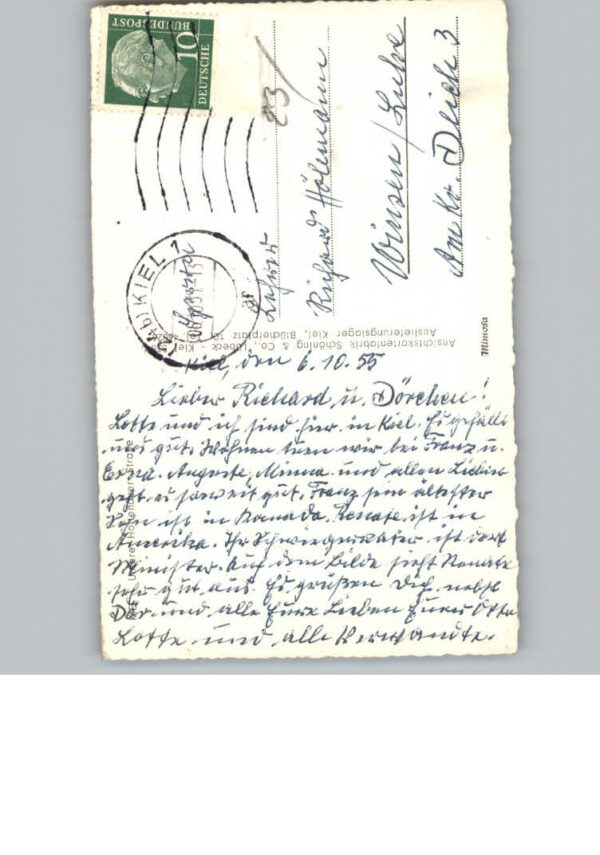 DEUTSCHE
BUNDESPOST
10
(24b) KIEL 1
23/
Lehrer
Richard
Winsen/Luhe
Am Kr. Deich 3
Ansichtskartenfabrik Schöning & Co., Lübeck
Auslieferungslager Kiel, Blücherplatz
Mimosa
Kiel, den 6.10.55
Lieber Richard u. Dörchen!
Lotte und ich sind hier in Kiel. Es gefällt
uns gut. Wohnen tuen wir bei Franz u.
Erna. Auguste, Minna und allen Lieben
geht es soweit gut. Franz sein ältester
Sohn ist in Kanada. Renate ist in
Amerika. Ihr Schwiegervater ist dort
Minister. Auf dem Bilde sieht Renate
sehr gut aus. Es grüßen Dich nebst
und alle Eure Lieben Euer Otto
Lotte und alle Verwandte.